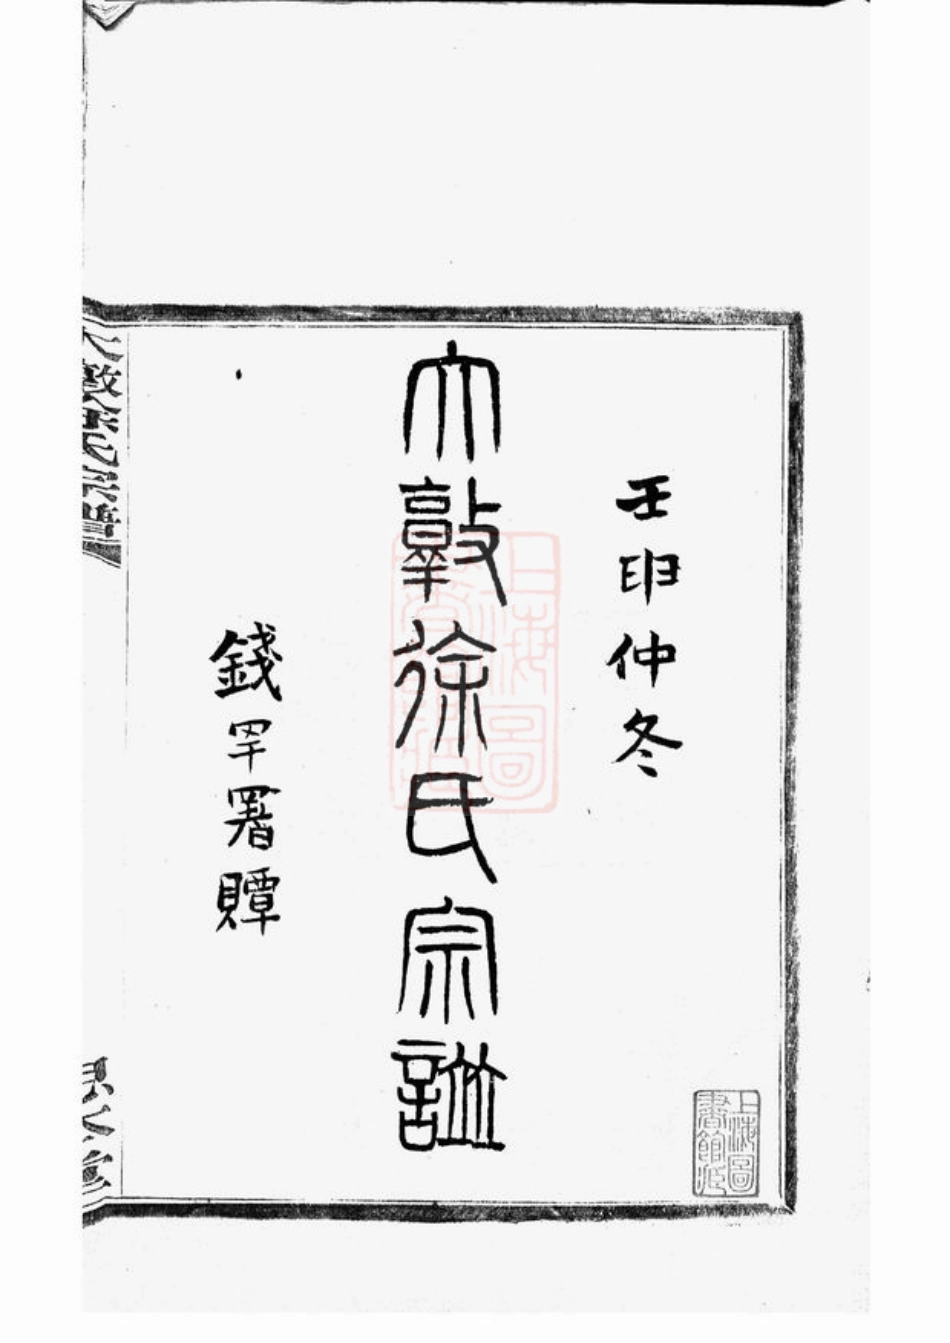 壬申仲冬
大敦徐氏宗譜
錢罕署贉
大敦徐氏宗譜
上海圖書館藏
上海圖書館藏